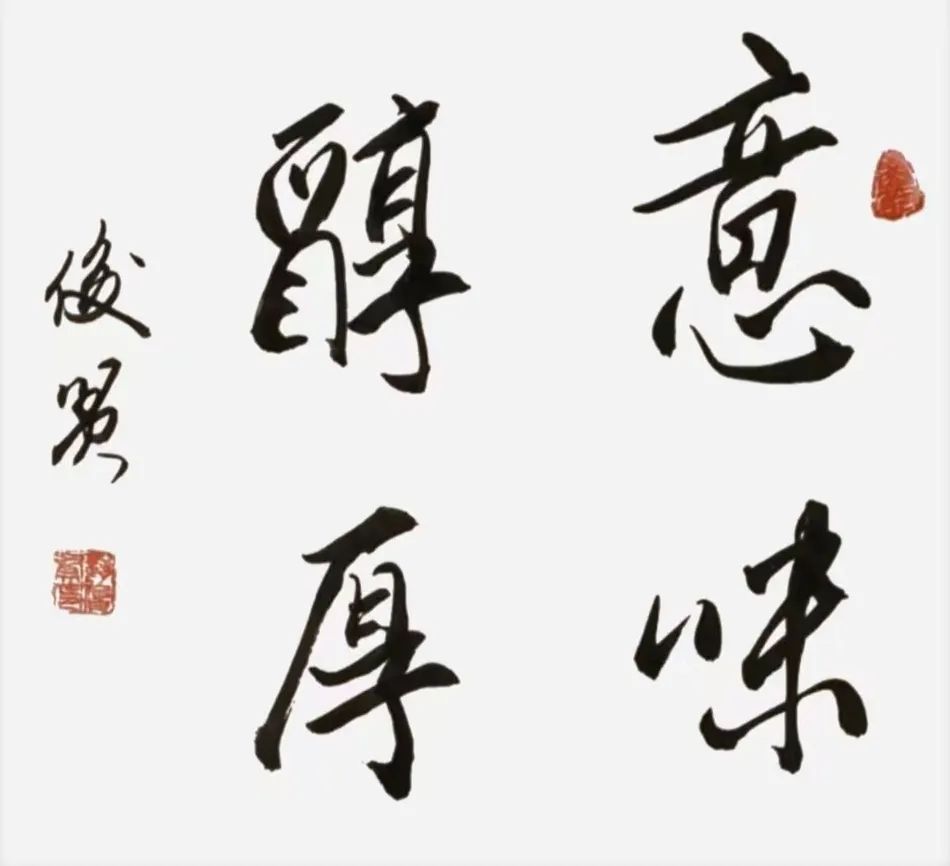 意味
醇厚
俊贤